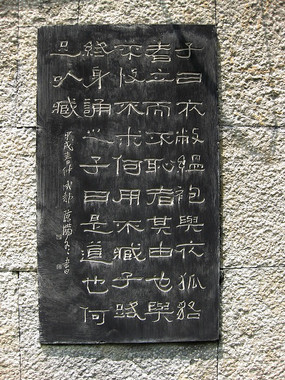 子曰衣敝縕袍與衣狐貉
者立而不恥者其由也與
不忮不求何用不臧子路
終身誦之子曰是道也何
足以臧